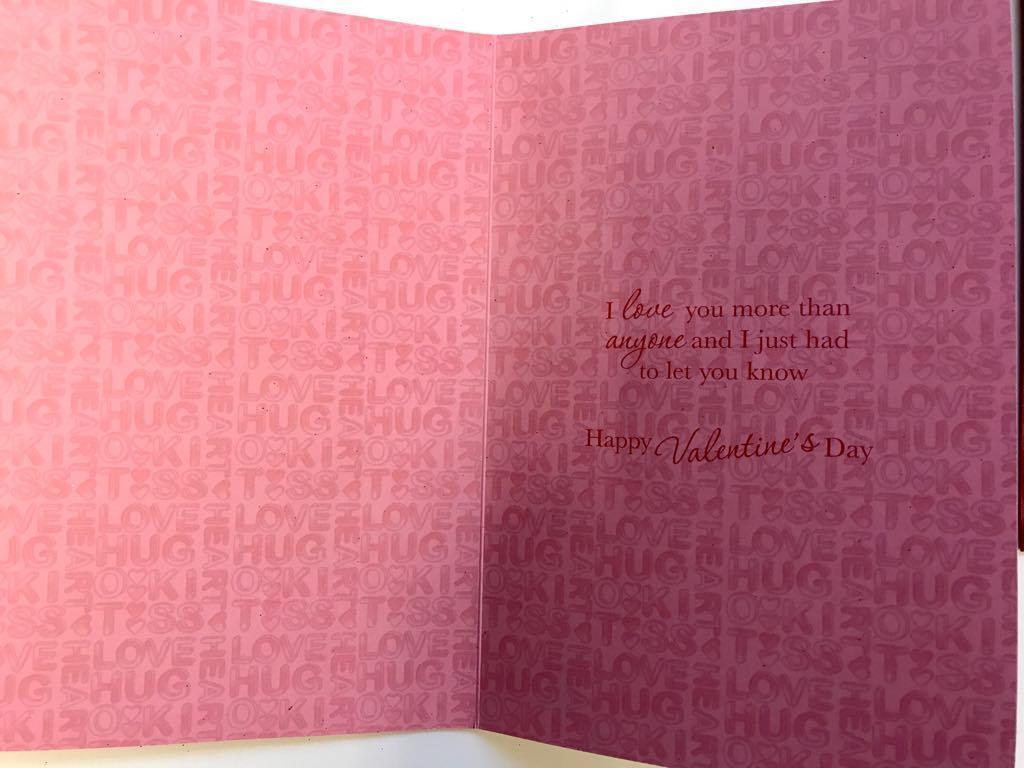 I love you more than
anyone and I just had
to let you know
Happy Valentine's Day